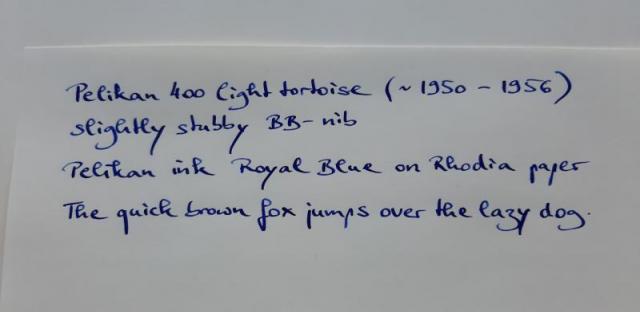 Pelikan 400 light tortoise (~ 1950 - 1956)
slightly stubby BB-nib
Pelikan ink Royal Blue on Rhodia paper
The quick brown fox jumps over the lazy dog.